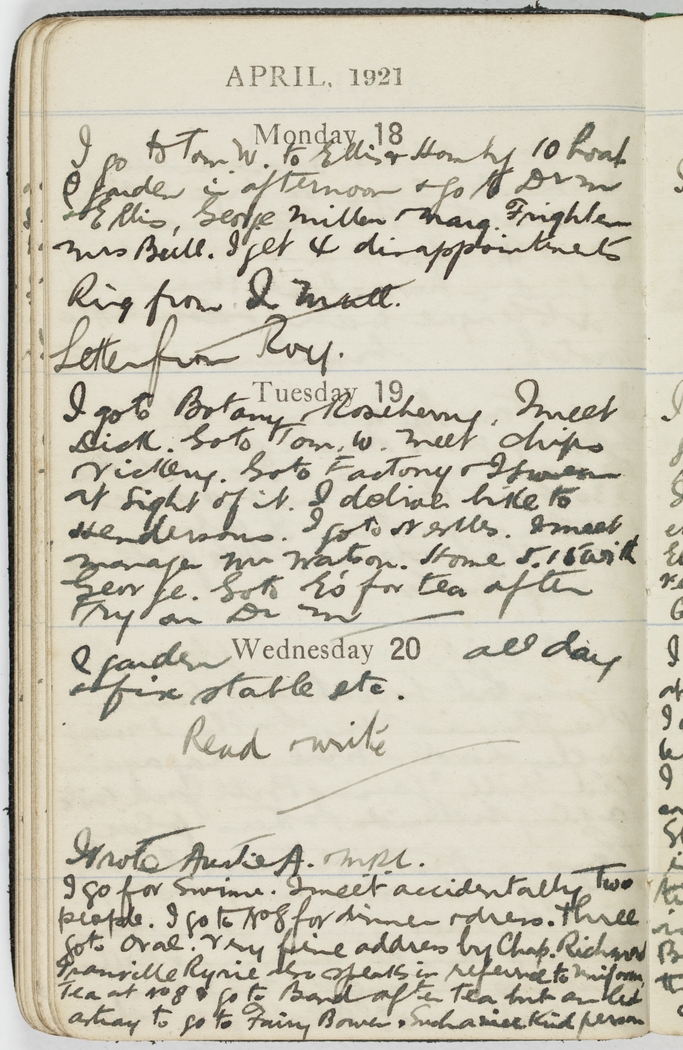 APRIL, 1921
Monday 18
I go to Tom W. to Ellis & 10 boat
I garden in afternoon & go to Dr m
& Ellis, George Miller & Marg. Frighten
Mrs Bull. I get 4 disappointments
Ring from
Letter from Roy.
Tuesday 19
I go to Botany, Roseberry, I meet
Dick. Go to Tom. W. meet chips
Vickery. Go to Factory & I
at sight of it. I deliver bike to
Hendersons. I go to Nestles. I meet
manager Mr Watson. Home 5.15 with
George. Go to E's for tea after
try on Dr m
Wednesday 20
I garden all day
& fix stable etc.
Read & write
Wrote Austie A.
I go for swim. I meet accidentally two
people. I go to No 8 for dinner & dress. Three
go to Oval. Very fine address by Chap. Richard
Granville Ryrie also speaks in reference to uniform
Tea at No 8 & go to Band after tea but am led
astray to go to Fairy Bower. Such a nice kind person